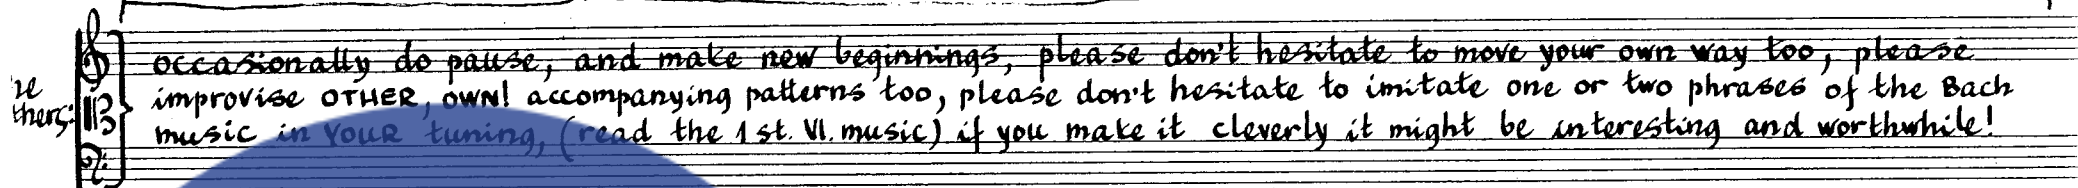 occasionally do pause, and make new beginnings, please don't hesitate to move your own way too, please
improvise OTHER, OWN! accompanying patterns too, please don't hesitate to imitate one or two phrases of the Bach
music in YOUR tuning, (read the 1st. Vl. music) if you make it cleverly it might be interesting and worthwhile!